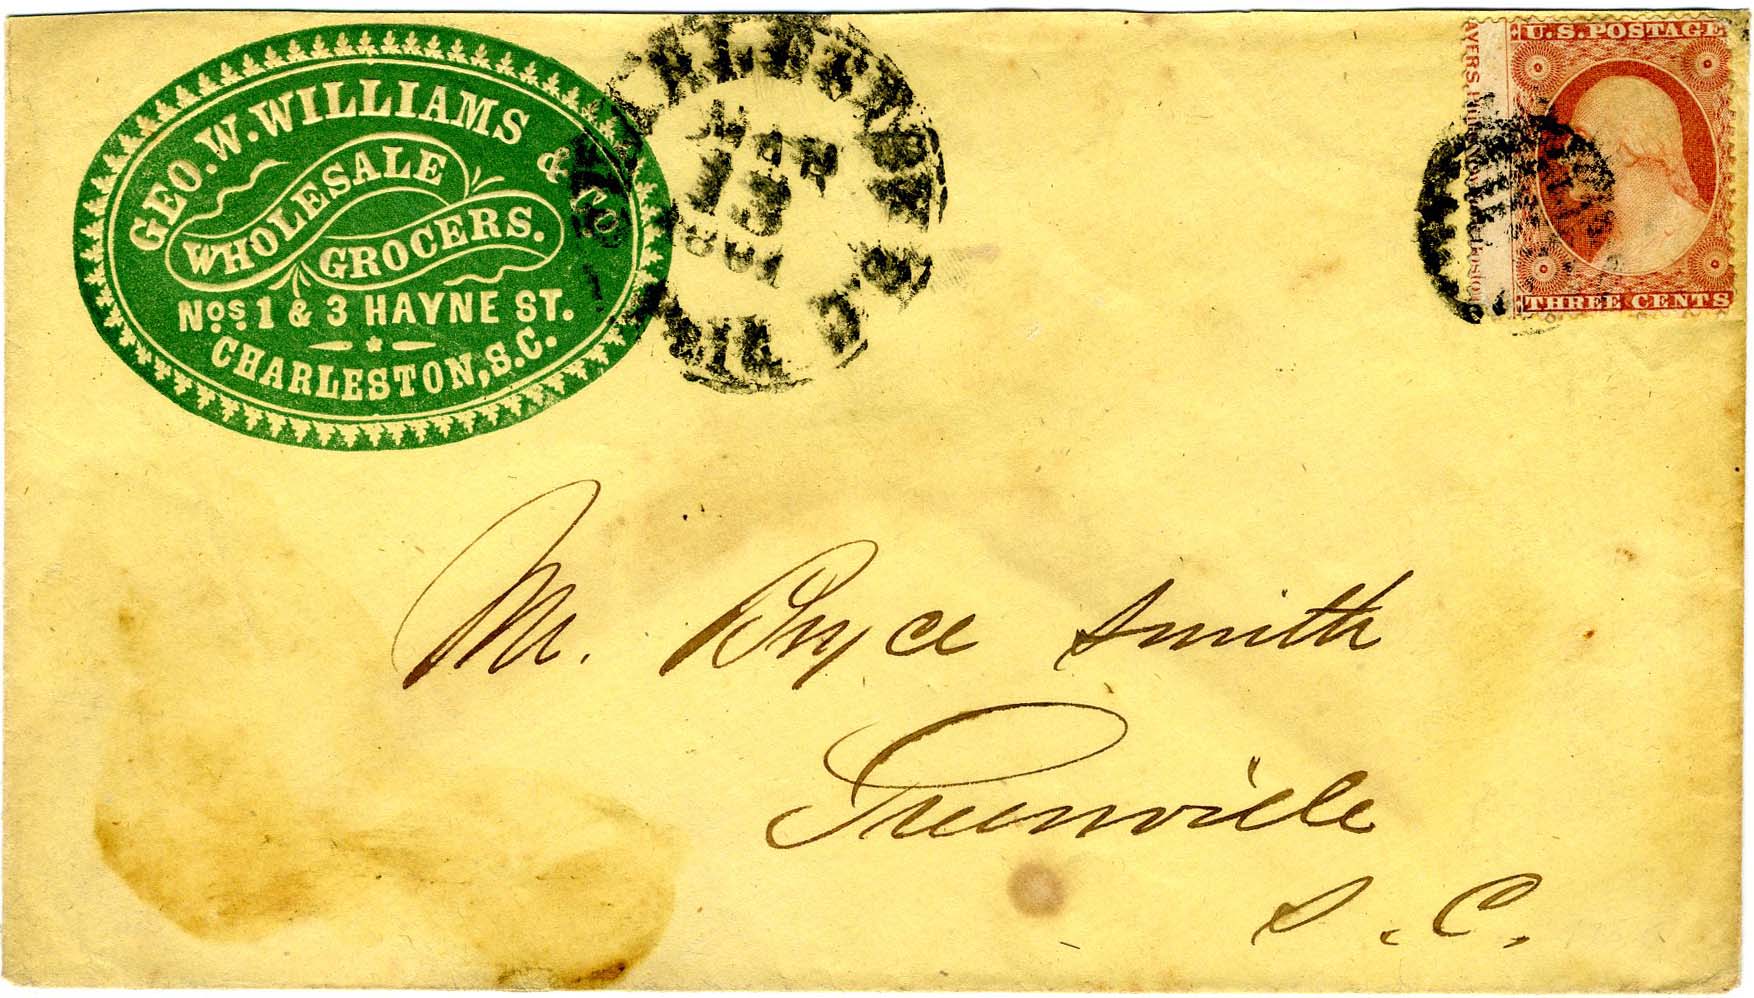 GEO. W. WILLIAMS & Co
WHOLESALE
GROCERS.
Nos. 1 & 3 HAYNE ST.
CHARLESTON, S.C.
MAR
13
1861
U.S. POSTAGE
THREE CENTS
Mr. Bryce Smith
Greenville
S. C.